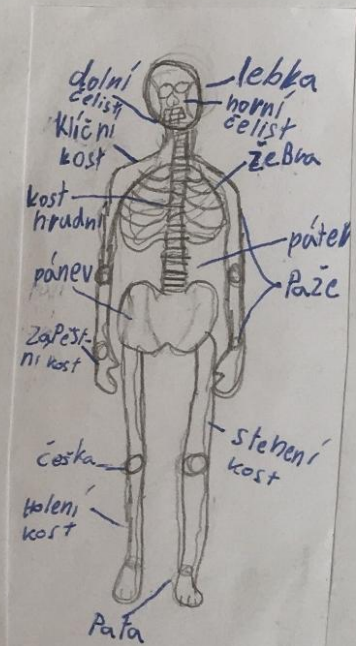 dolní
čelist
lebka
horní
čelist
Klíční
kost
žeBra
kost
hrudní
páteř
pánev
Paže
ZaPěst-
ní kost
češka
stehení
kost
Holení
kost
PaTa